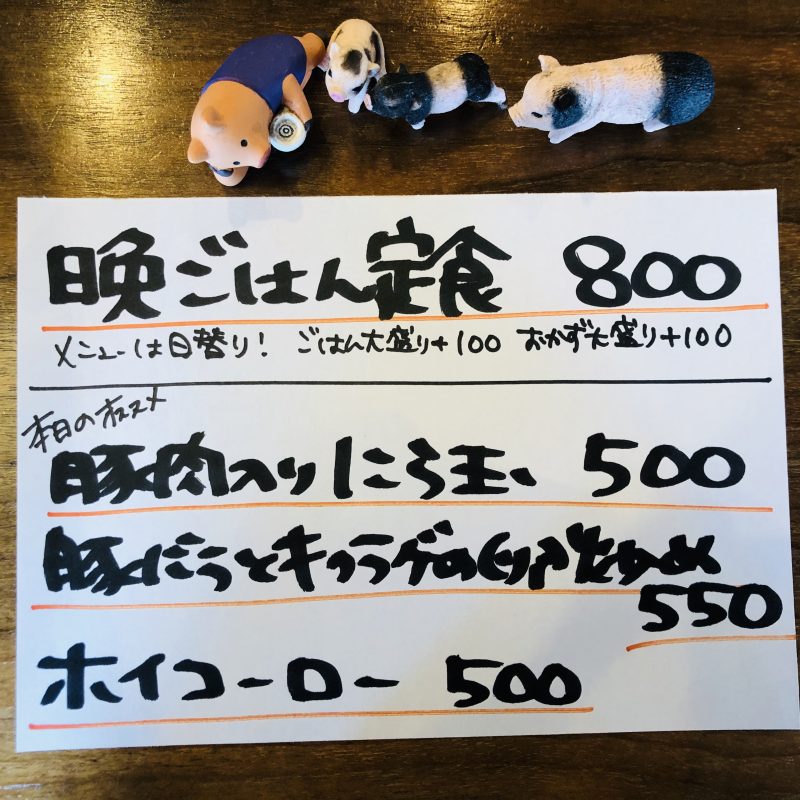 晩ごはん定食 800
メニューは日替り! ごはん大盛り+100 おかず大盛り+100
本日のオススメ
豚肉入りにら玉 500
豚ばらとキクラゲの卵炒め
550
ホイコーロー 500